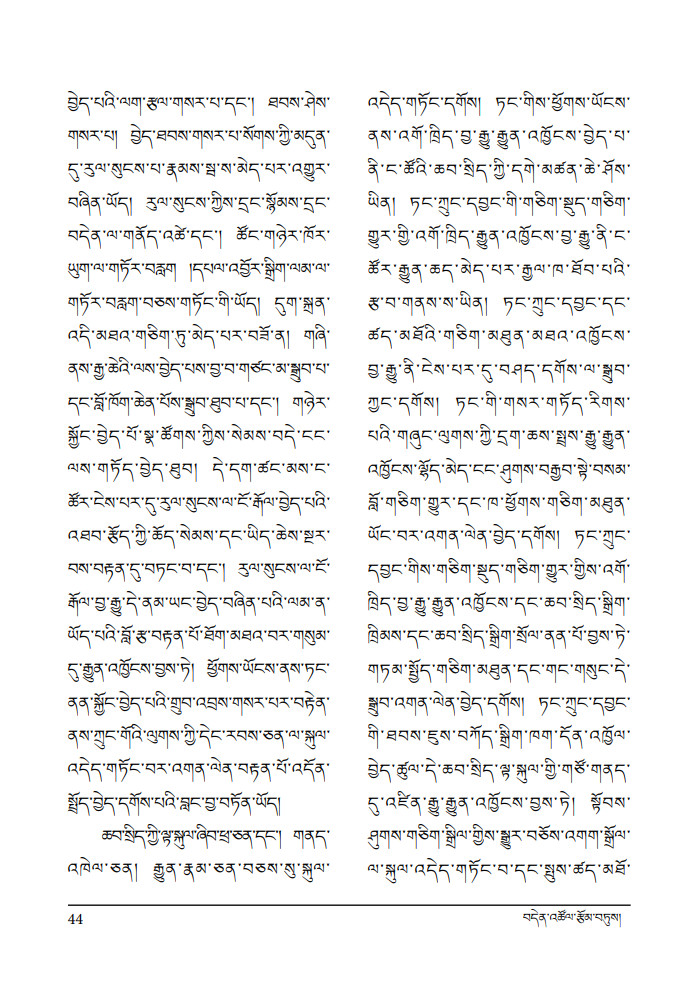 བྱེད་པའི་ལག་རྩལ་གསར་པ་དང་། ཐབས་ཤེས་
གསར་པ། བྱེད་ཐབས་གསར་པ་སོགས་ཀྱི་མདུན་
དུ་རུལ་སུངས་པ་རྣམས་སྦ་ས་མེད་པར་འགྱུར་
བཞིན་ཡོད། རུལ་སུངས་ཀྱིས་དྲང་སྙོམས་དྲང་
བདེན་ལ་གནོད་འཚེ་དང་། ཚོང་གཉེར་ཁོར་
ཡུག་ལ་གཏོར་བརླག །དཔལ་འབྱོར་སྒྲིག་ལམ་ལ་
གཏོར་བརླག་བཅས་གཏོང་གི་ཡོད། དུག་སྐྲན་
འདི་མཐའ་གཅིག་ཏུ་མེད་པར་བཟོ་ན། གཞི་
ནས་རྒྱ་ཆེའི་ལས་བྱེད་པས་བྱ་བ་གཙང་མ་སྒྲུབ་པ་
དང་བློ་ཁོག་ཆེན་པོས་སྒྲུབ་ཐུབ་པ་དང་། གཉེར་
སྐྱོང་བྱེད་པོ་སྣ་ཚོགས་ཀྱིས་སེམས་བདེ་ངང་
ལས་གཏོད་བྱེད་ཐུབ། དེ་དག་ཚང་མས་ང་
ཚོར་ངེས་པར་དུ་རུལ་སུངས་ལ་ངོ་རྒོལ་བྱེད་པའི་
འཐབ་རྩོད་ཀྱི་ཆོད་སེམས་དང་ཡིད་ཆེས་སྔར་
བས་བརྟན་དུ་བཏང་བ་དང་། རུལ་སུངས་ལ་ངོ་
རྒོལ་བྱ་རྒྱུ་དེ་ནམ་ཡང་བྱེད་བཞིན་པའི་ལམ་ན་
ཡོད་པའི་བློ་རྩ་བརྟན་པོ་ཐོག་མཐའ་བར་གསུམ་
དུ་རྒྱུན་འཁྱོངས་བྱས་ཏེ། ཕྱོགས་ཡོངས་ནས་ཏང་
ནན་སྐྱོང་བྱེད་པའི་གྲུབ་འབྲས་གསར་པར་བརྟེན་
ནས་ཀྲུང་གོའི་ལུགས་ཀྱི་དེང་རབས་ཅན་ལ་སྐུལ་
འདེད་གཏོང་བར་འགན་ལེན་བརྟན་པོ་འདོན་
སྤྲོད་བྱེད་དགོས་པའི་བླང་བྱ་བཏོན་ཡོད།
ཆབ་སྲིད་ཀྱི་ལྟ་སྐུལ་ཞིབ་ཕྲ་ཅན་དང་། གནད་
འཁེལ་ཅན། རྒྱུན་རྣམ་ཅན་བཅས་སུ་སྐུལ་
འདེད་གཏོང་དགོས། ཏང་གིས་ཕྱོགས་ཡོངས་
ནས་འགོ་ཁྲིད་བྱ་རྒྱུ་རྒྱུན་འཁྱོངས་བྱེད་པ་
ནི་ང་ཚོའི་ཆབ་སྲིད་ཀྱི་དགེ་མཚན་ཆེ་ཤོས་
ཡིན། ཏང་ཀྲུང་དབྱང་གི་གཅིག་སྡུད་གཅིག་
གྱུར་གྱི་འགོ་ཁྲིད་རྒྱུན་འཁྱོངས་བྱ་རྒྱུ་ནི་ང་
ཚོར་རྒྱུན་ཆད་མེད་པར་རྒྱལ་ཁ་ཐོབ་པའི་
རྩ་བ་གནས་ས་ཡིན། ཏང་ཀྲུང་དབྱང་དང་
ཚད་མཐོའི་གཅིག་མཐུན་མཐའ་འཁྱོངས་
བྱ་རྒྱུ་ནི་ངེས་པར་དུ་བཤད་དགོས་ལ་སྒྲུབ་
ཀྱང་དགོས། ཏང་གི་གསར་གཏོད་རིགས་
པའི་གཞུང་ལུགས་ཀྱི་དྲག་ཆས་སྤྲས་རྒྱུ་རྒྱུན་
འཁྱོངས་ལྷོད་མེད་ངང་ཤུགས་བརྒྱབ་སྟེ་བསམ་
བློ་གཅིག་གྱུར་དང་ཁ་ཕྱོགས་གཅིག་མཐུན་
ཡོང་བར་འགན་ལེན་བྱེད་དགོས། ཏང་ཀྲུང་
དབྱང་གིས་གཅིག་སྡུད་གཅིག་གྱུར་གྱིས་འགོ་
ཁྲིད་བྱ་རྒྱུ་རྒྱུན་འཁྱོངས་དང་ཆབ་སྲིད་སྒྲིག་
ཁྲིམས་དང་ཆབ་སྲིད་སྒྲིག་སྲོལ་ནན་པོ་བྱས་ཏེ་
གཏམ་སྤྱོད་གཅིག་མཐུན་དང་གང་གསུང་དེ་
སྒྲུབ་འགན་ལེན་བྱེད་དགོས། ཏང་ཀྲུང་དབྱང་
གི་ཐབས་ཇུས་བཀོད་སྒྲིག་ཁག་དོན་འཁྱོལ་
བྱེད་ཚུལ་དེ་ཆབ་སྲིད་ལྟ་སྐུལ་གྱི་གཙོ་གནད་
དུ་འཛིན་རྒྱུ་རྒྱུན་འཁྱོངས་བྱས་ཏེ། སྟོབས་
ཤུགས་གཅིག་སྒྲིལ་གྱིས་སྒྱུར་བཅོས་འགག་སྒྲོལ་
ལ་སྐུལ་འདེད་གཏོང་བ་དང་སྤུས་ཚད་མཐོ་
44
བདེན་འཚོལ་རྩོམ་བཏུས།